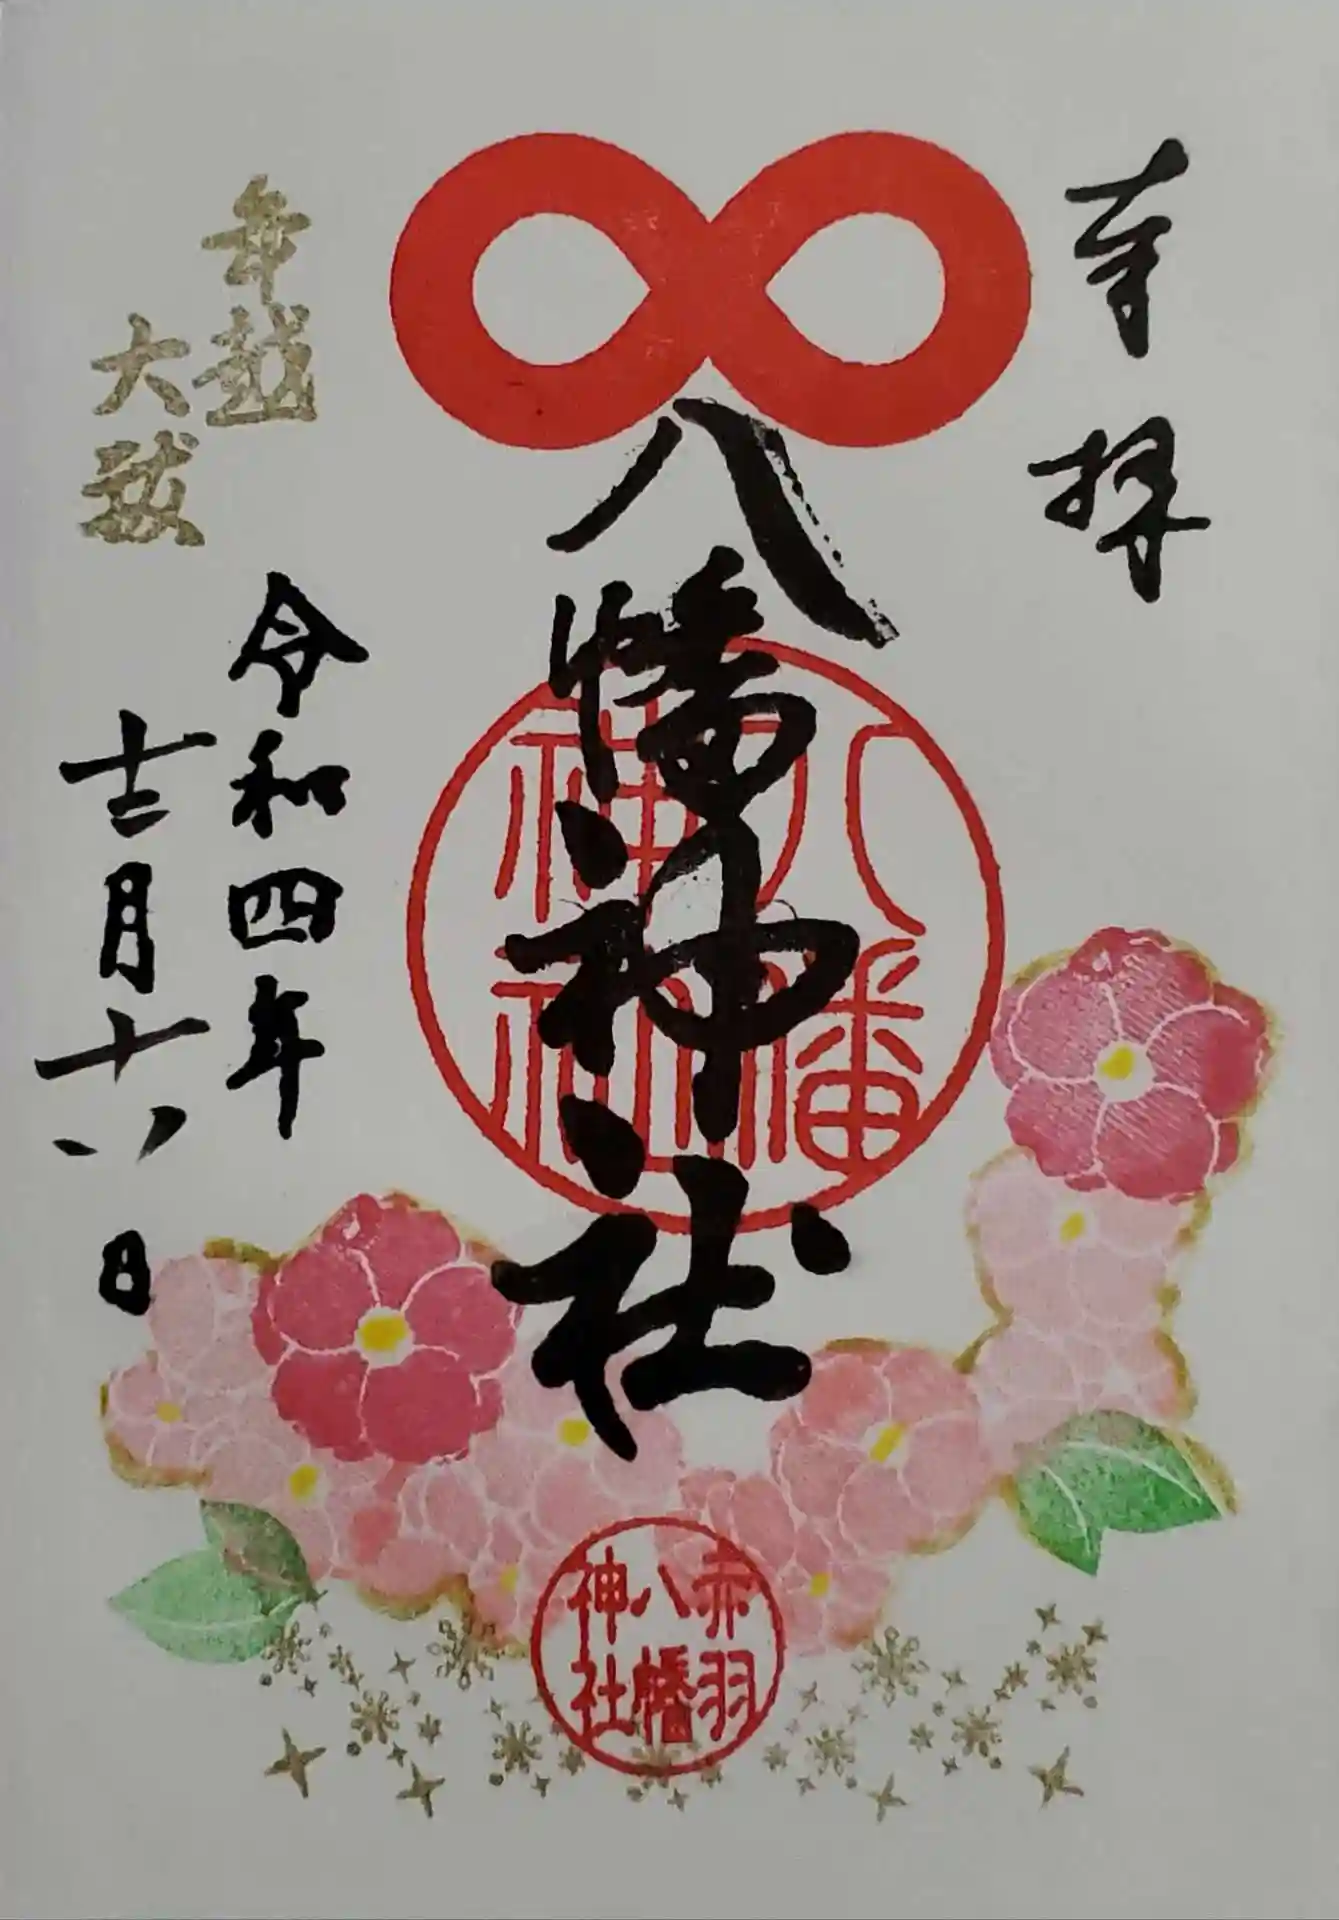 奉拝
八幡神社
八幡
神社
年越
大祓
令和四年
十二月十八日
赤羽
八幡
神社